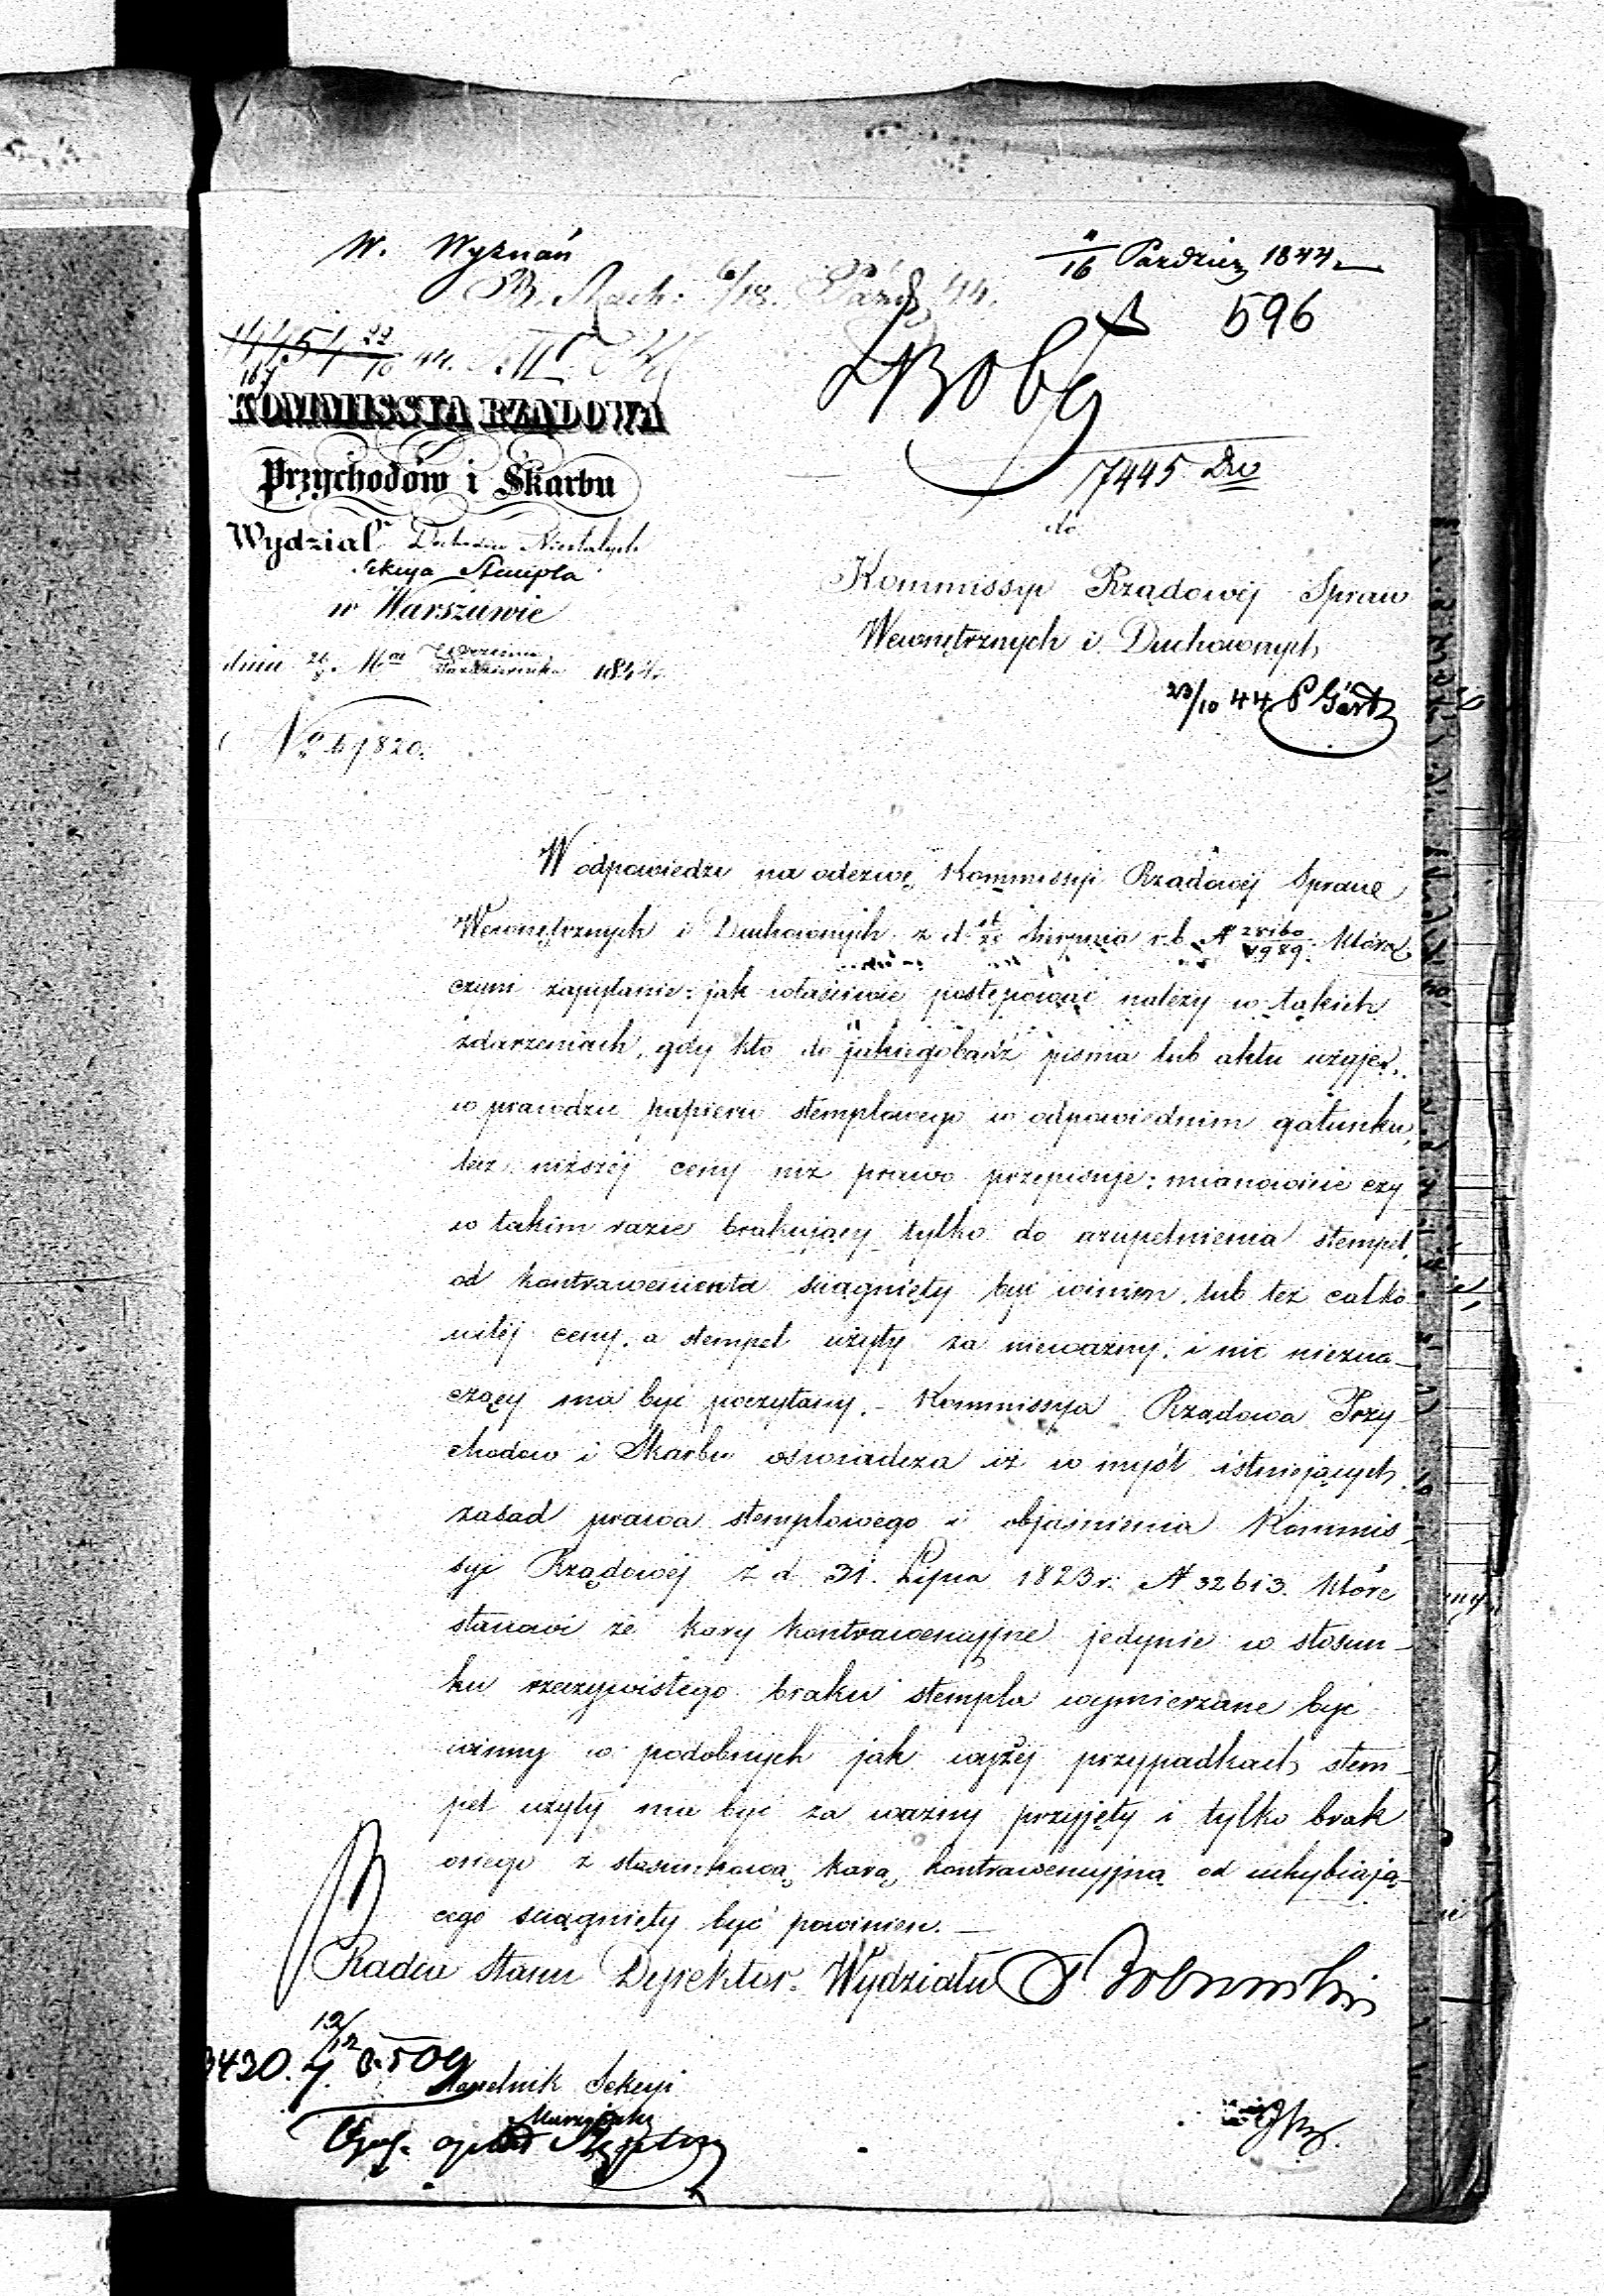 W. Wyznań
4/16 Paździer 1844
B. Rach: 6/18. Paźd 44.
596
KOMMISSYA RZĄDOWA
Przychodów i Skarbu
7445 Dw
Wydział Dochodów Niestałych
Sekcya Stempla
w Warszawie
do
Kommissyi Rządowéj Spraw
Wewnętrznych i Duchownych
dnia Mca Września Października 1844
23/10 44
No 67820.
W odpowiedzi na odezwę Kommissyi Rządowéj Spraw
Wewnętrznych i Duchownych z d. Sierpnia r. b. N która
czyni zapytanie: jak właściwie postępować należy w takich
zdarzeniach, gdy kto do jakiegobądź pisma lub aktu użyje
w prawdzie papieru stemplowego w odpowiednim gatunku,
lecz niższéj ceny niż prawo przepisuje: mianowicie czy
w takim razie brakujący tylko do uzupełnienia stempel,
od kontrawenienta sciągnięty być winien, lub też całko
witéj ceny, a stempel użyty za nieważny, i nic niezna-
czący ma być poczytany. – Kommissya Rządowa Przy
chodów i Skarbu oświadcza iż w myśl istniejących
zasad prawa stemplowego i objaśnienia Kommis-
syi Rządowéj z d. 31. Lipca 1823 r. N 32613. które
stanowi że kary kontrawencyjne jedynie w stosun-
ku rzeczywistego braku stempla wymierzane być
winny w podobnych jak wyżéj przypadkach stem-
pel użyty ma być za ważny przyjęty i tylko brak
onego z stosunkową karą kontrawencyjną od uchybiają-
cego sciągnięty być powinien. —
Radca Stanu Dyrektor Wydziału
Naczelnik Sekcyi